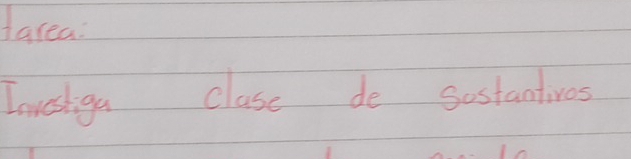 Tarea:
Investiga clase de sustantivos